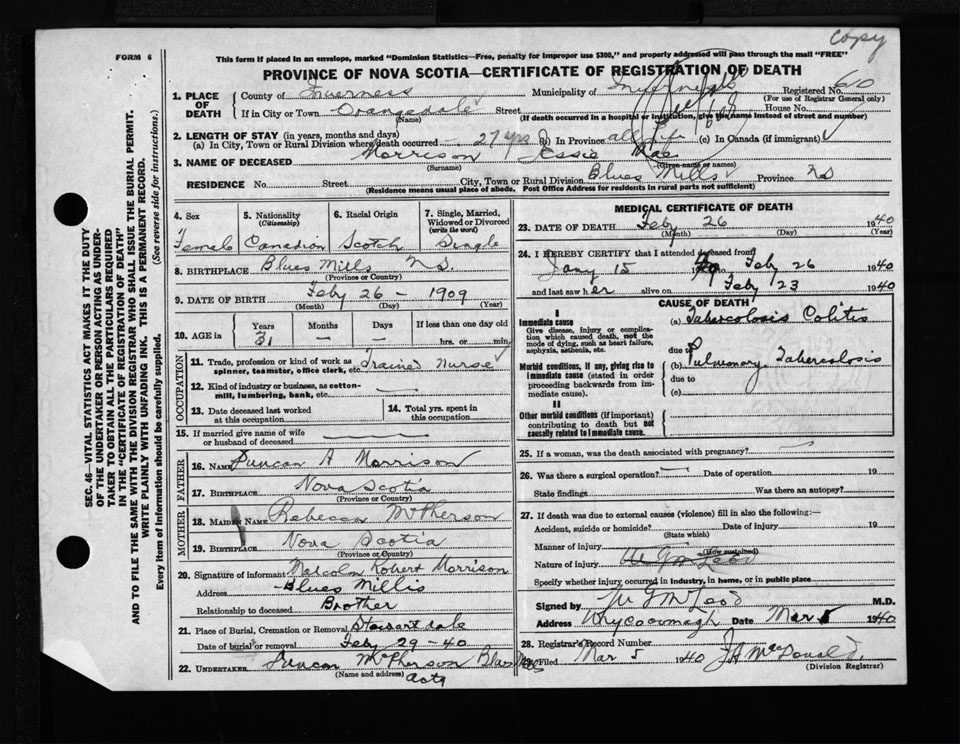 copy
FORM 6
This form if placed in an envelope, marked "Dominion Statistics—Free, penalty for improper use $300," and properly addressed will pass through the mail "FREE"
PROVINCE OF NOVA SCOTIA—CERTIFICATE OF REGISTRATION OF DEATH
SEC. 46—VITAL STATISTICS ACT MAKES IT THE DUTY
OF THE UNDERTAKER OR PERSON ACTING AS UNDER-
TAKER TO OBTAIN ALL THE PARTICULARS REQUIRED
IN THE "CERTIFICATE OF REGISTRATION OF DEATH"
AND TO FILE THE SAME WITH THE DIVISION REGISTRAR WHO SHALL ISSUE THE BURIAL PERMIT.
WRITE PLAINLY WITH UNFADING INK. THIS IS A PERMANENT RECORD.
Every item of information should be carefully supplied. (See reverse side for instructions.)
1. PLACE OF DEATH
County of Inverness Municipality of Inverness Registered No. 610
(For use of Registrar General only)
If in City or Town Orangedale Street House No.
(Name) (If death occurred in a hospital or institution, give the name instead of street and number)
2. LENGTH OF STAY (in years, months and days)
(a) In City, Town or Rural Division where death occurred 27 yrs (b) In Province all life (c) In Canada (if immigrant)
3. NAME OF DECEASED Morrison Jessie Mae
(Surname) (Given name or names)
RESIDENCE No. Street City, Town or Rural Division Blues Mills Province NS
(Residence means usual place of abode. Post Office Address for residents in rural parts not sufficient)
4. Sex
Female
5. Nationality
(Citizenship)
Canadian
6. Racial Origin
Scotch
7. Single, Married,
Widowed or Divorced
(write the word)
Single
8. BIRTHPLACE Blues Mills NS.
(Province or Country)
9. DATE OF BIRTH Feby 26 - 1909
(Month) (Day) (Year)
10. AGE in
Years Months Days If less than one day old
31 — — hrs. or min.
OCCUPATION
11. Trade, profession or kind of work as
spinner, teamster, office clerk, etc. Trained Nurse
12. Kind of industry or business, as cotton-
mill, lumbering, bank, etc.
13. Date deceased last worked
at this occupation
14. Total yrs. spent in
this occupation
15. If married give name of wife
or husband of deceased
FATHER
16. Name Duncan A Morrison
17. Birthplace Nova Scotia
(Province or Country)
MOTHER
18. Maiden Name Rebecca McPherson
19. Birthplace Nova Scotia
(Province or Country)
20. Signature of informant Malcolm Robert Morrison
Address Blues Mills
Relationship to deceased Brother
21. Place of Burial, Cremation or Removal Stewartdale
Date of burial or removal Feby 29 - 40
22. Undertaker Duncan McPherson Blues Mills
(Name and address)
MEDICAL CERTIFICATE OF DEATH
23. DATE OF DEATH Feby 26 1940
(Month) (Day) (Year)
24. I HEREBY CERTIFY that I attended deceased from
Jany 15 1940 to Feby 26 1940
and last saw her alive on Feby 23 1940
CAUSE OF DEATH
I
Immediate cause
Give disease, injury or complica-
tion which caused death, not the
mode of dying, such as heart failure,
asphyxia, asthenia, etc.
(a) Tubercolosis Colitis
due to
Morbid conditions, if any, giving rise to
immediate cause (stated in order
proceeding backwards from im-
mediate cause).
(b) Pulmonary Tubercolosis
due to
(c)
II
Other morbid conditions (if important)
contributing to death but not
causally related to immediate cause.
25. If a woman, was the death associated with pregnancy?
26. Was there a surgical operation? Date of operation 19
State findings Was there an autopsy?
27. If death was due to external causes (violence) fill in also the following:—
Accident, suicide or homicide? Date of injury 19
(State which)
Manner of injury
(How sustained)
Nature of injury
Specify whether injury occurred in industry, in home, or in public place
Signed by McLeod M.D.
Address Whycocomagh Date Mar 5 1940
28. Registrar's Record Number
29. Filed Mar 5 1940 J A MacDonald
(Division Registrar)